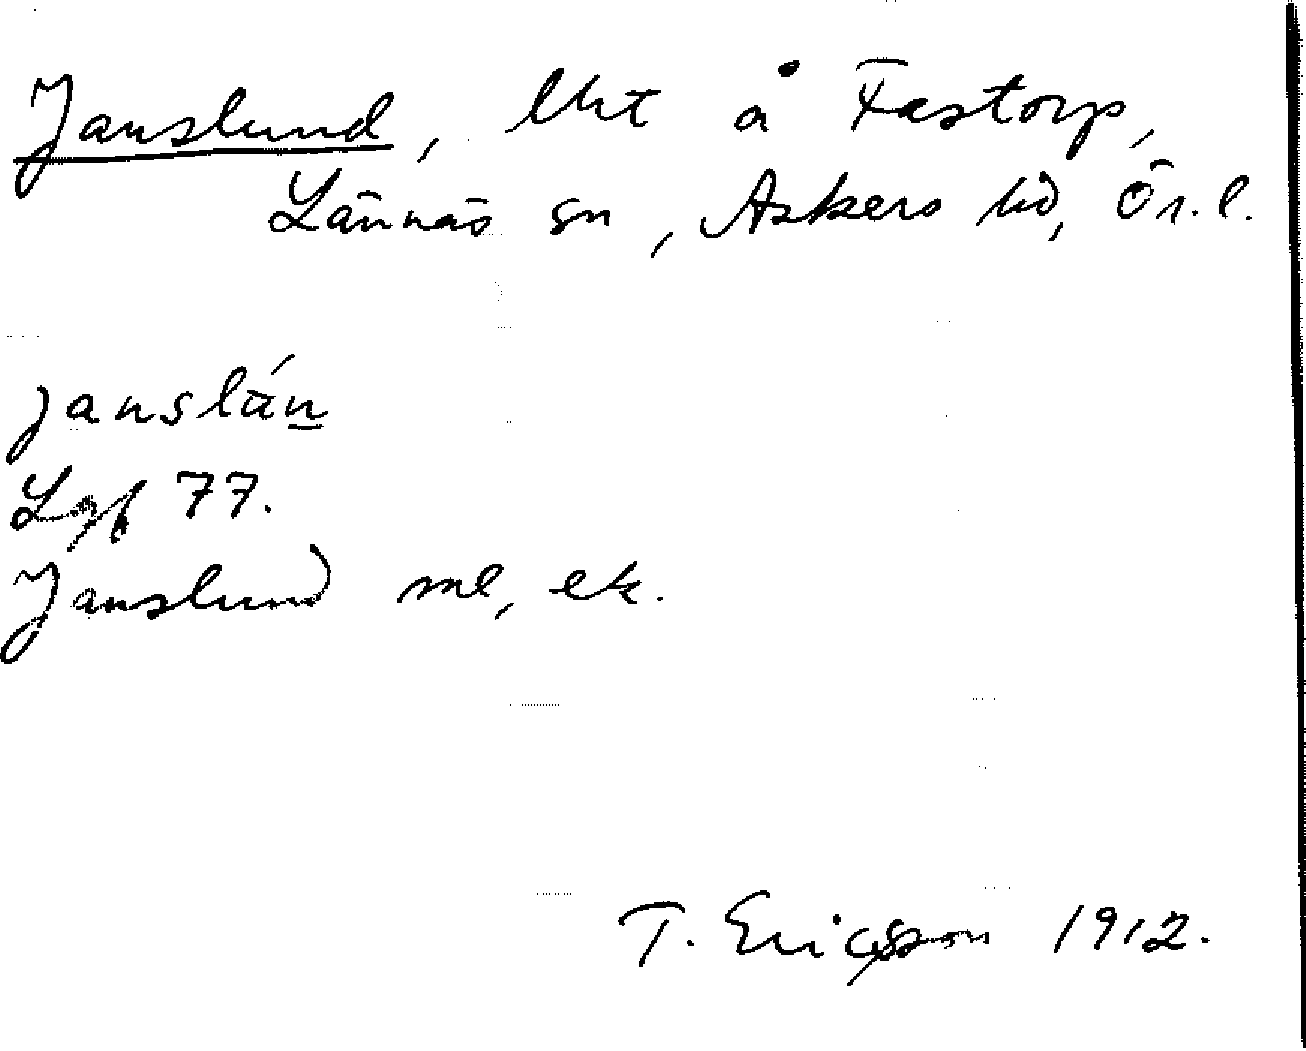 Janslund, lht å Fastorp,
Lännäs sn, Askers hd, Ör. l.
janslán
Lgf 77.
Janslund me, ek.
T. Ericsson 1912.